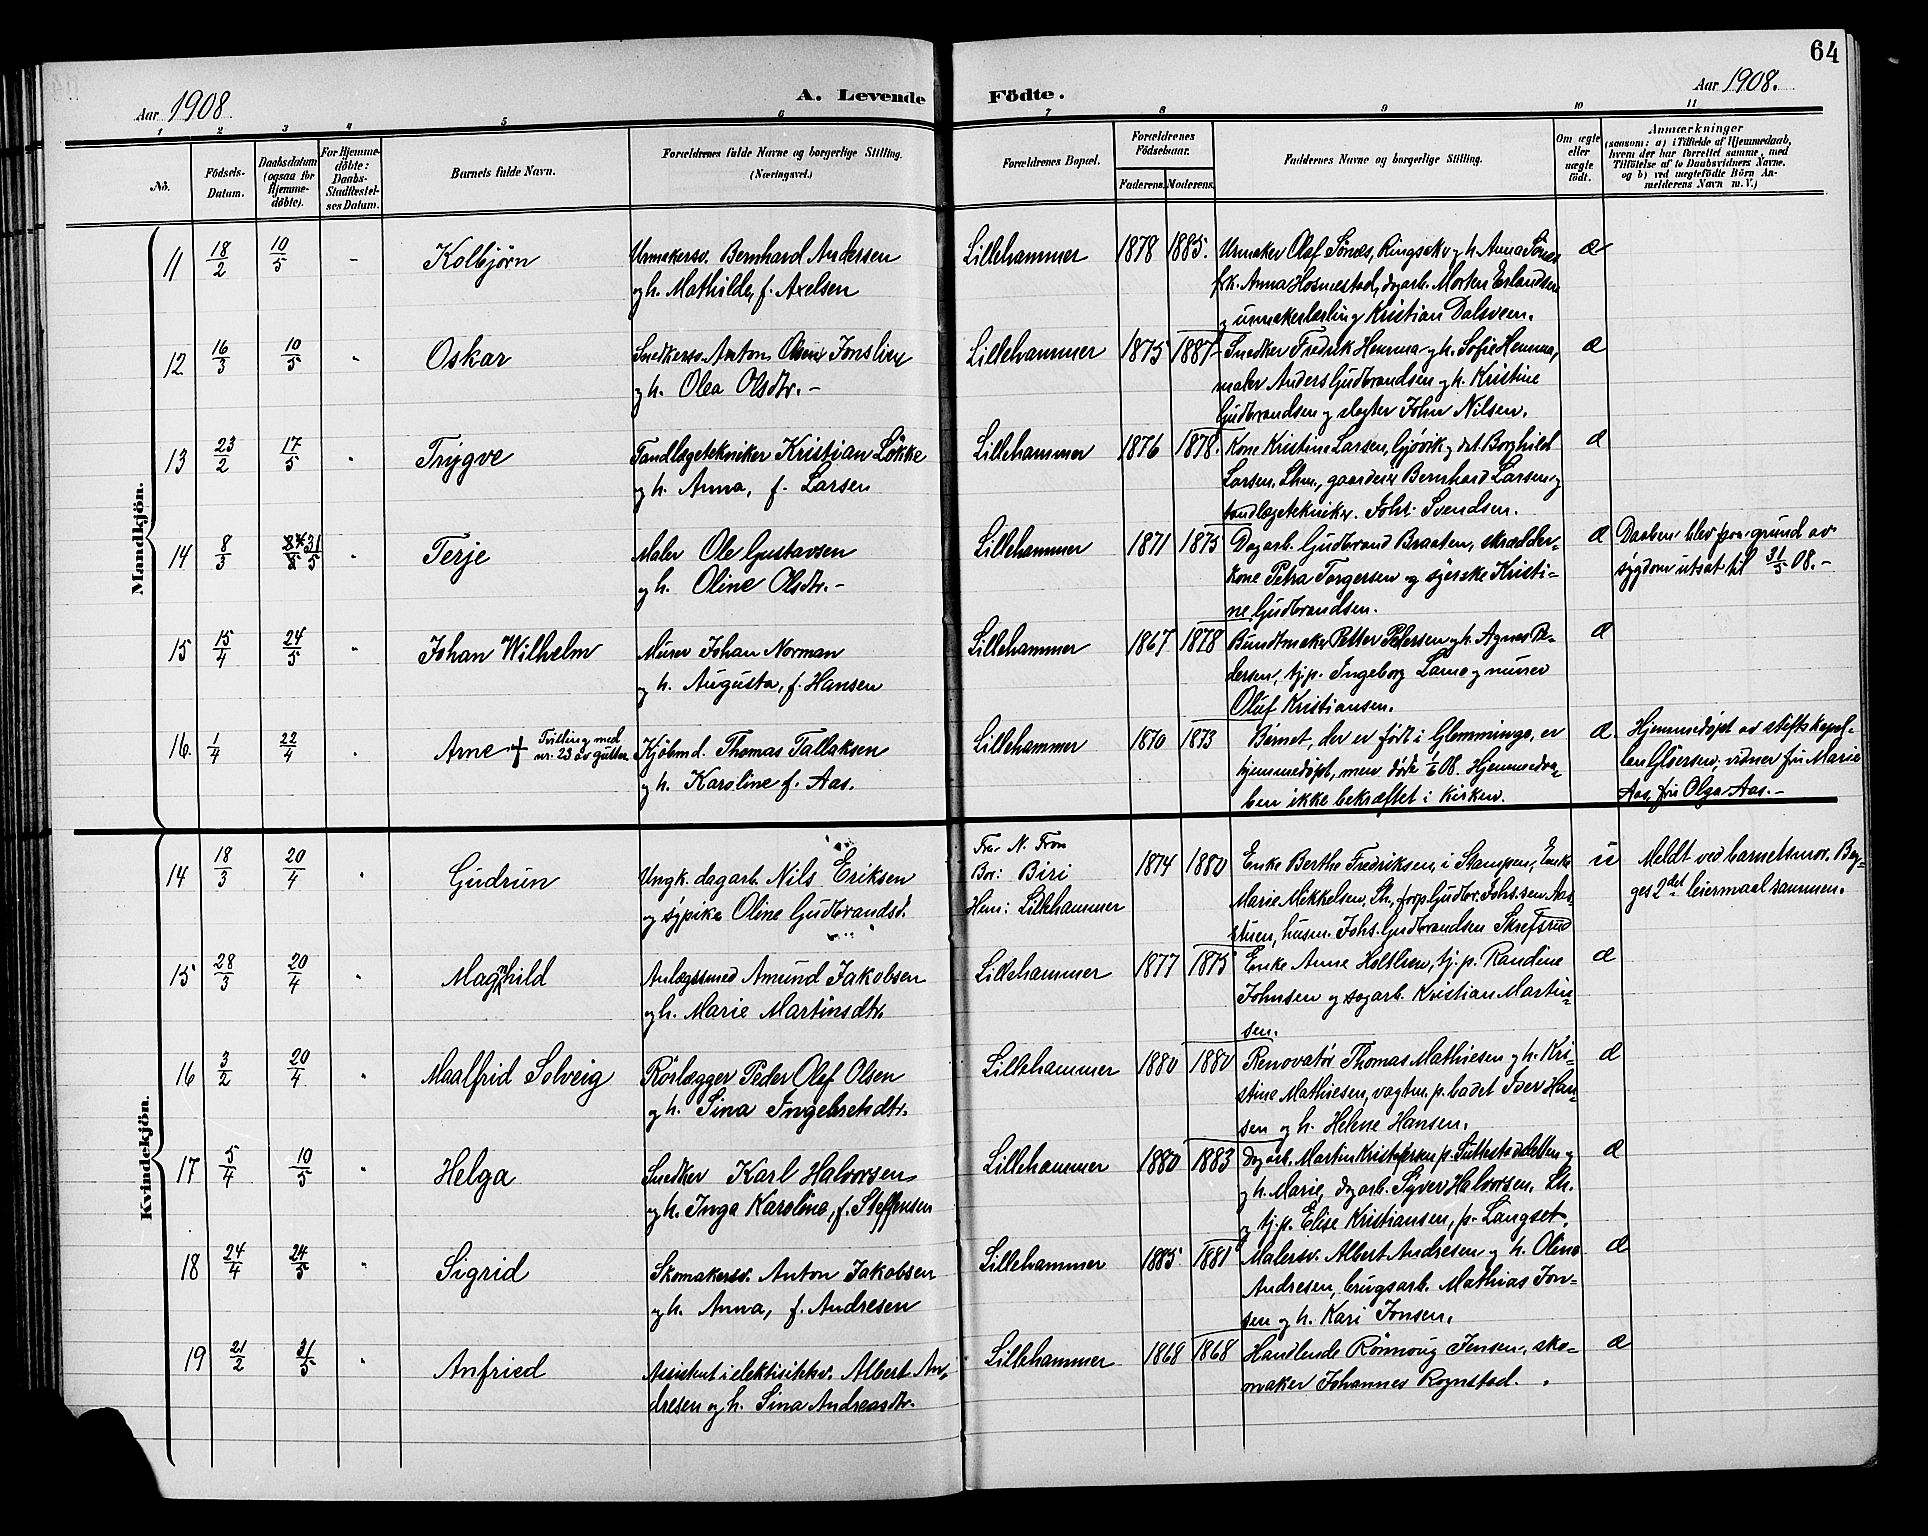 64
Aar 1908
A. Levende Födte.
Aar 1908.
1 2 3 4 5 6 7 8 9 10 11
No.
Födsels-Datum.
Daabsdatum (ogsaa for Hjemmedöbte).
For Hjemmedöbte: Daabs-Stadfestelses Datum.
Barnets fulde Navn.
Forældrenes fulde Navne og borgerlige Stilling. (Næringsvei.)
Forældrenes Bopæl.
Forældrenes Födselsaar.
Faderens. Moderens.
Faddernes Navne og borgerlige Stilling.
Om ægte eller uægte født.
Anmærkninger
(saasom: a) i Tilfælde af Hjemmedaab,
hvem der har forrettet samme, med
Tilföielse af to Daabsvidners Navne,
og b) ved uægtefödte Börn An-
melderens Navn m. V.)
Mandkjön.
11 18/2 10/5 - Kolbjörn
Urmakersv. Bernhard Andersen
og h. Mathilde, f. Axelsen
Lillehammer 1878 1885.
Urmaker Olaf Sönes, Ringsak. og h. Anna Sönes
frk. Anna Hosmestad, dagarb. Morten Erlandsen
og urmakerlærling Kristian Dalsveen.
æ
12 16/3 10/5 " Oskar
Snedkersv. Anton Olsen Jonslien
og h. Olea Olsdtr. -
Lillehammer 1875 1887
Snedker Fredrik Hemma og h. Sofie Hemma,
maler Anders Gudbrandsen og h. Kristine
Gudbrandsen og slagter John Nilsen.
æ
13 23/2 17/5 " Trygve
Tandlægetekniker Kristian Lökke
og h. Anna, f. Larsen
Lillehammer 1876 1878.
Kone Kristine Larsen, Gjövik og dat. Borghild
Larsen, Lhm., gaardeier Bernhard Larsen og
tandlægetekniker. Johs. Svendsen.
æ
14 8/3 31/5 " Terje
Maler Ole Gustavsen
og h. Oline Olsdtr. -
Lillehammer 1871 1875
Dagarb. Gudbrand Braaten, skrædder-
kone Petra Torgersen og syerske Kristi-
ne Gudbrandsen.
æ
Daaben blev paa grund av
sygdom utsat til 31/5 08. -
15 15/4 24/5 " Johan Wilhelm
Murer Johan Norman
og h. Augusta, f. Hansen
Lillehammer 1867 1878
Bundtmaker Petter Pedersen og h. Agnes Pe-
dersen, tj.p. Ingeborg Lamo og murer
Oluf Kristiansen.
æ
16. 1/4 22/4 " Arne † Tvilling med
nr. 23 av gutter
Kjöbmd. Thomas Tallaksen
og h. Karoline f. Aas.
Lillehammer 1870 1873
Barnet, der er født i Glemminge, er
hjemmedøpt, men døde 1/6 08. Hjemmedaa-
ben ikke bekræftet i kirken.
æ.
Hjemmedøpt av stiftskapel-
lan Gløersen, vidner fru Marie
Aas, fru Olga Aas. -
Kvindekjön.
14 18/3 20/4 " Gudrun
Ungk. dagarb. Nils Eriksen
og sypike Oline Gudbrandsd.
Far N. Fron
Bor: Biri
Hun: Lillehammer
1874 1880
Enke Berthe Fredriksen, i Stampen, Enke
Marie Mikkelsen, Lh., forp. Gudbr. Johs.sen Aas-
stuen, husm. Johs. Gudbrandsen Skrefsrud
u
Meldt ved barnets mor. Beg-
ges 2det leiermaal sammen.
15 28/3 20/4 " Magnhild
Anlægssmed Amund Jakobsen
og h. Marie Martinsdtr.
Lillehammer 1877 1875
Enke Anne Holthen, tj.p. Randine
Johnsen og sagarb. Kristian Martin-
sen.
æ
16 3/2 20/4 " Maalfrid Solveig
Rörlægger Peder Olaf Olsen
og h. Sina Ingebretsdtr.
Lillehammer 1880 1880
Renovatör Thomas Mathiesen og h. Kri-
stine Mathiesen, vagtm. p. badet Iver Han-
sen og h. Helene Hansen.
æ
17 5/4 10/5 " Helga
Snedker Karl Halvorsen
og h. Inga Karoline, f. Steffensen
Lillehammer 1880 1883
dagarb. Martin Kristofersen p. Suttestadletten og
og h. Marie, dagarb. Syver Halvorsen, Lh.
og tj.p. Elise Kristiansen, p. Langset.
æ
18 24/4 24/5 " Sigrid
Skomakersv. Anton Jakobsen
og h. Anna, f. Andresen
Lillehammer 1885 1881
Malersv. Albert Andresen og h. Oline
Andresen, brugsarb. Mathias Jon-
sen og h. Kari Jonsen.
æ
19 21/2 31/5 " Anfried
Assistent i elektisikkv. Albert An-
dresen og h. Sina Andreasdtr.
Lillehammer 1868 1868
Handlende Rönnoug Jensen, sko-
maker Johannes Rognstad.
æ